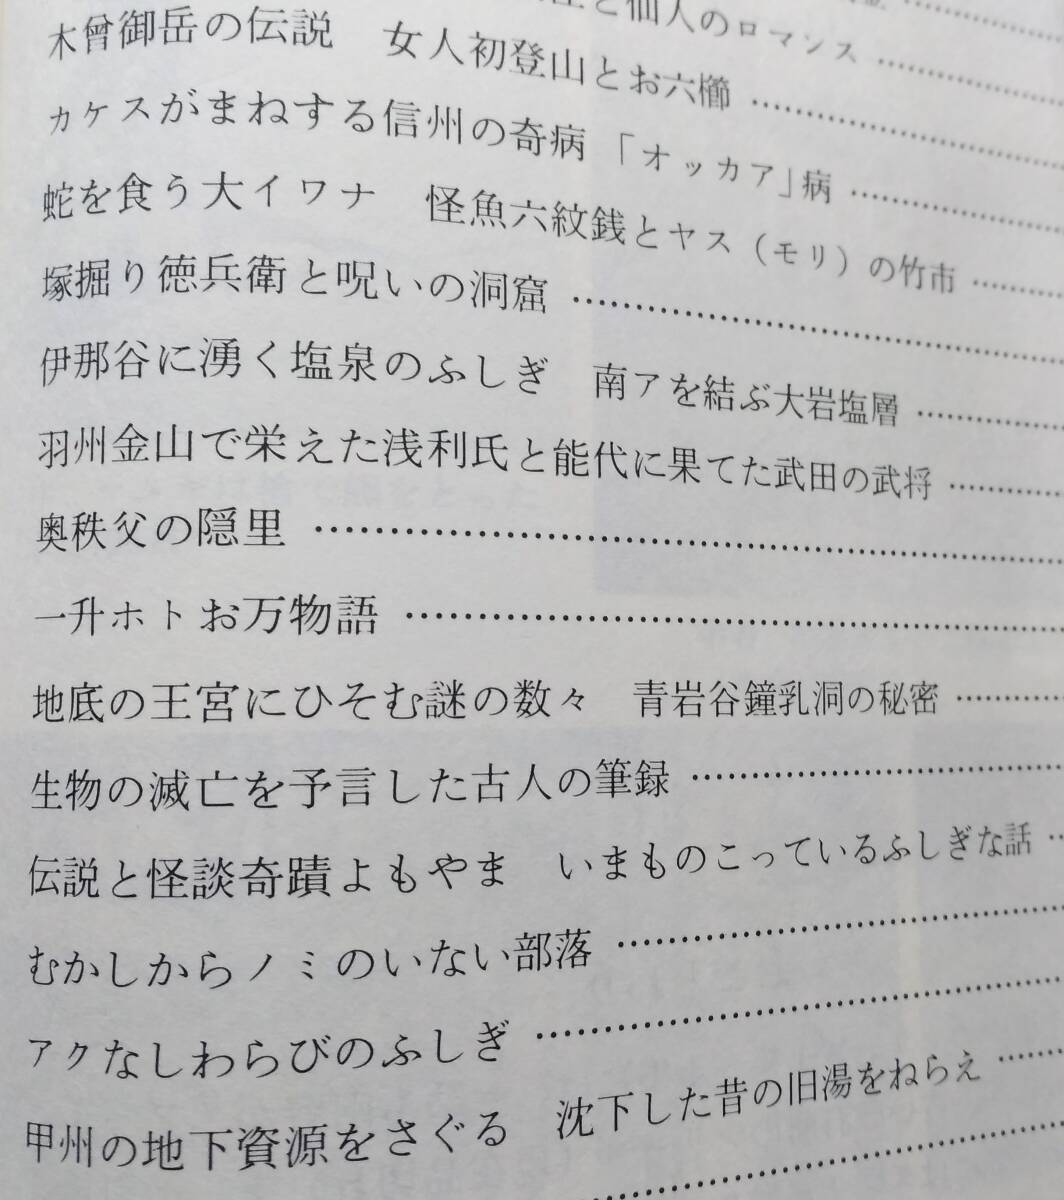 と仙人のロマンス
木曾御岳の伝説　女人初登山とお六櫛
カケスがまねする信州の奇病「オッカア」病
蛇を食う大イワナ　怪魚六紋銭とヤス（モリ）の竹市
塚掘り徳兵衛と呪いの洞窟
伊那谷に湧く塩泉のふしぎ　南アを結ぶ大岩塩層
羽州金山で栄えた浅利氏と能代に果てた武田の武将
奥秩父の隠里
一升ホトお万物語
地底の王宮にひそむ謎の数々　青岩谷鐘乳洞の秘密
生物の滅亡を予言した古人の筆録
伝説と怪談奇蹟よもやま　いまものこっているふしぎな話
むかしからノミのいない部落
アクなしわらびのふしぎ
甲州の地下資源をさぐる　沈下した昔の旧湯をねらえ